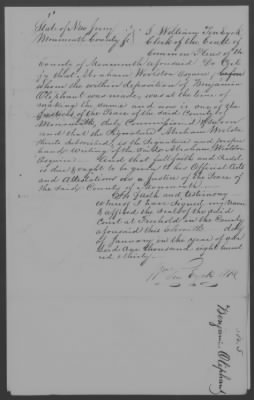 State of New Jersey
Monmouth County ss I William TenEyck
Clerk of the Court of
Common Pleas of the
County of Monmouth aforesaid Do Certi
fy that Abraham Woolston Esquire before
whom the within deposition of Benjamin
Oliphant was made, was at the time of
making the same and now is one of the
Justices of the Peace of the said County of
Monmouth, duly Commissioned & Sworn
and that the Signature Abraham
thereto Subscribed, is the Signature and proper
hand Writing of the said Abraham
Esquire And that full faith and Credit
is due & ought to be given to his Official Acts
and Attestations as a Justice of the Peace of
the said County of Monmouth
In faith and testimony
whereof I have signed my Name
& affixed the Seal of the said
Court at Freehold in the County
aforesaid this eleventh day
of January in the year of our
Lord One thousand eight hund
red & thirty
Wm Ten Eyck Clk
No. 5
Benjamin Oliphant